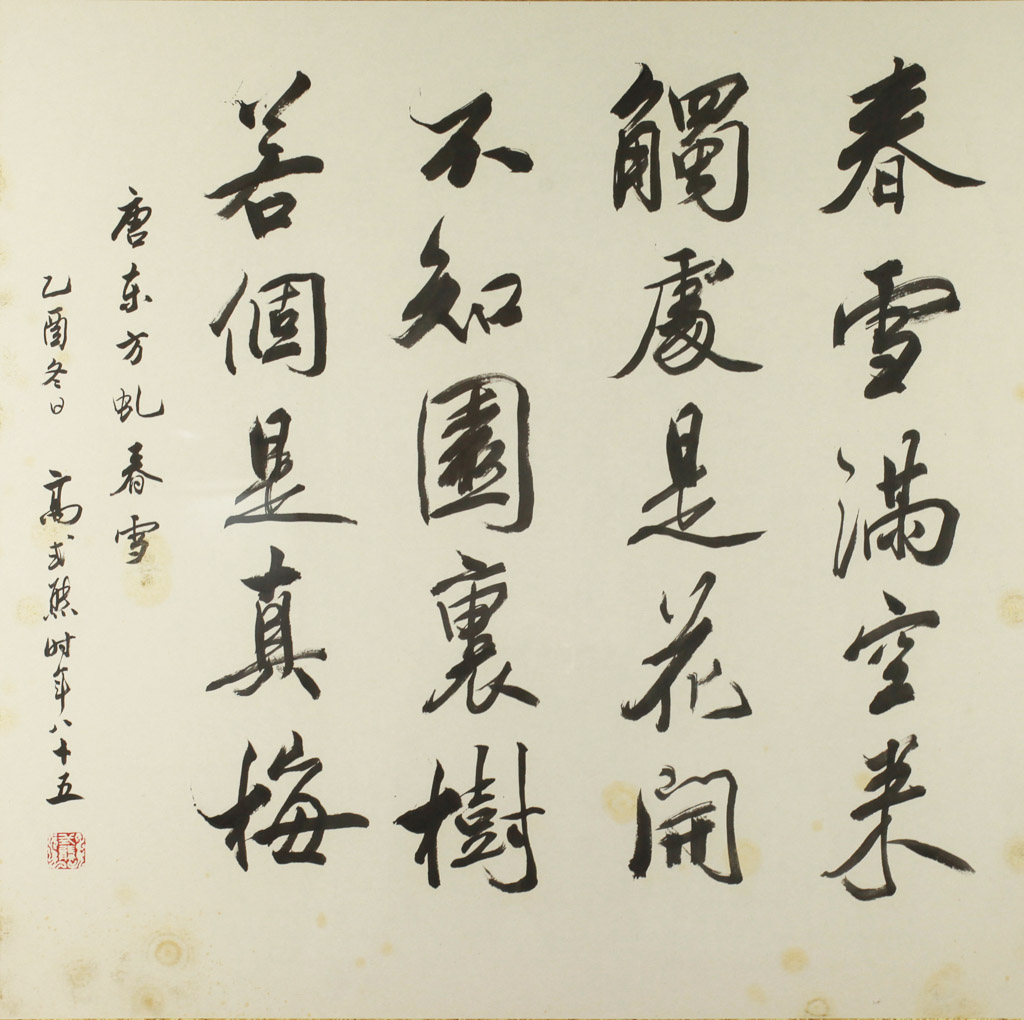 春雪满空来
觸處是花開
不知園裏樹
若個是真梅
唐東方虬春雪
乙酉冬日 高式熊时年八十五